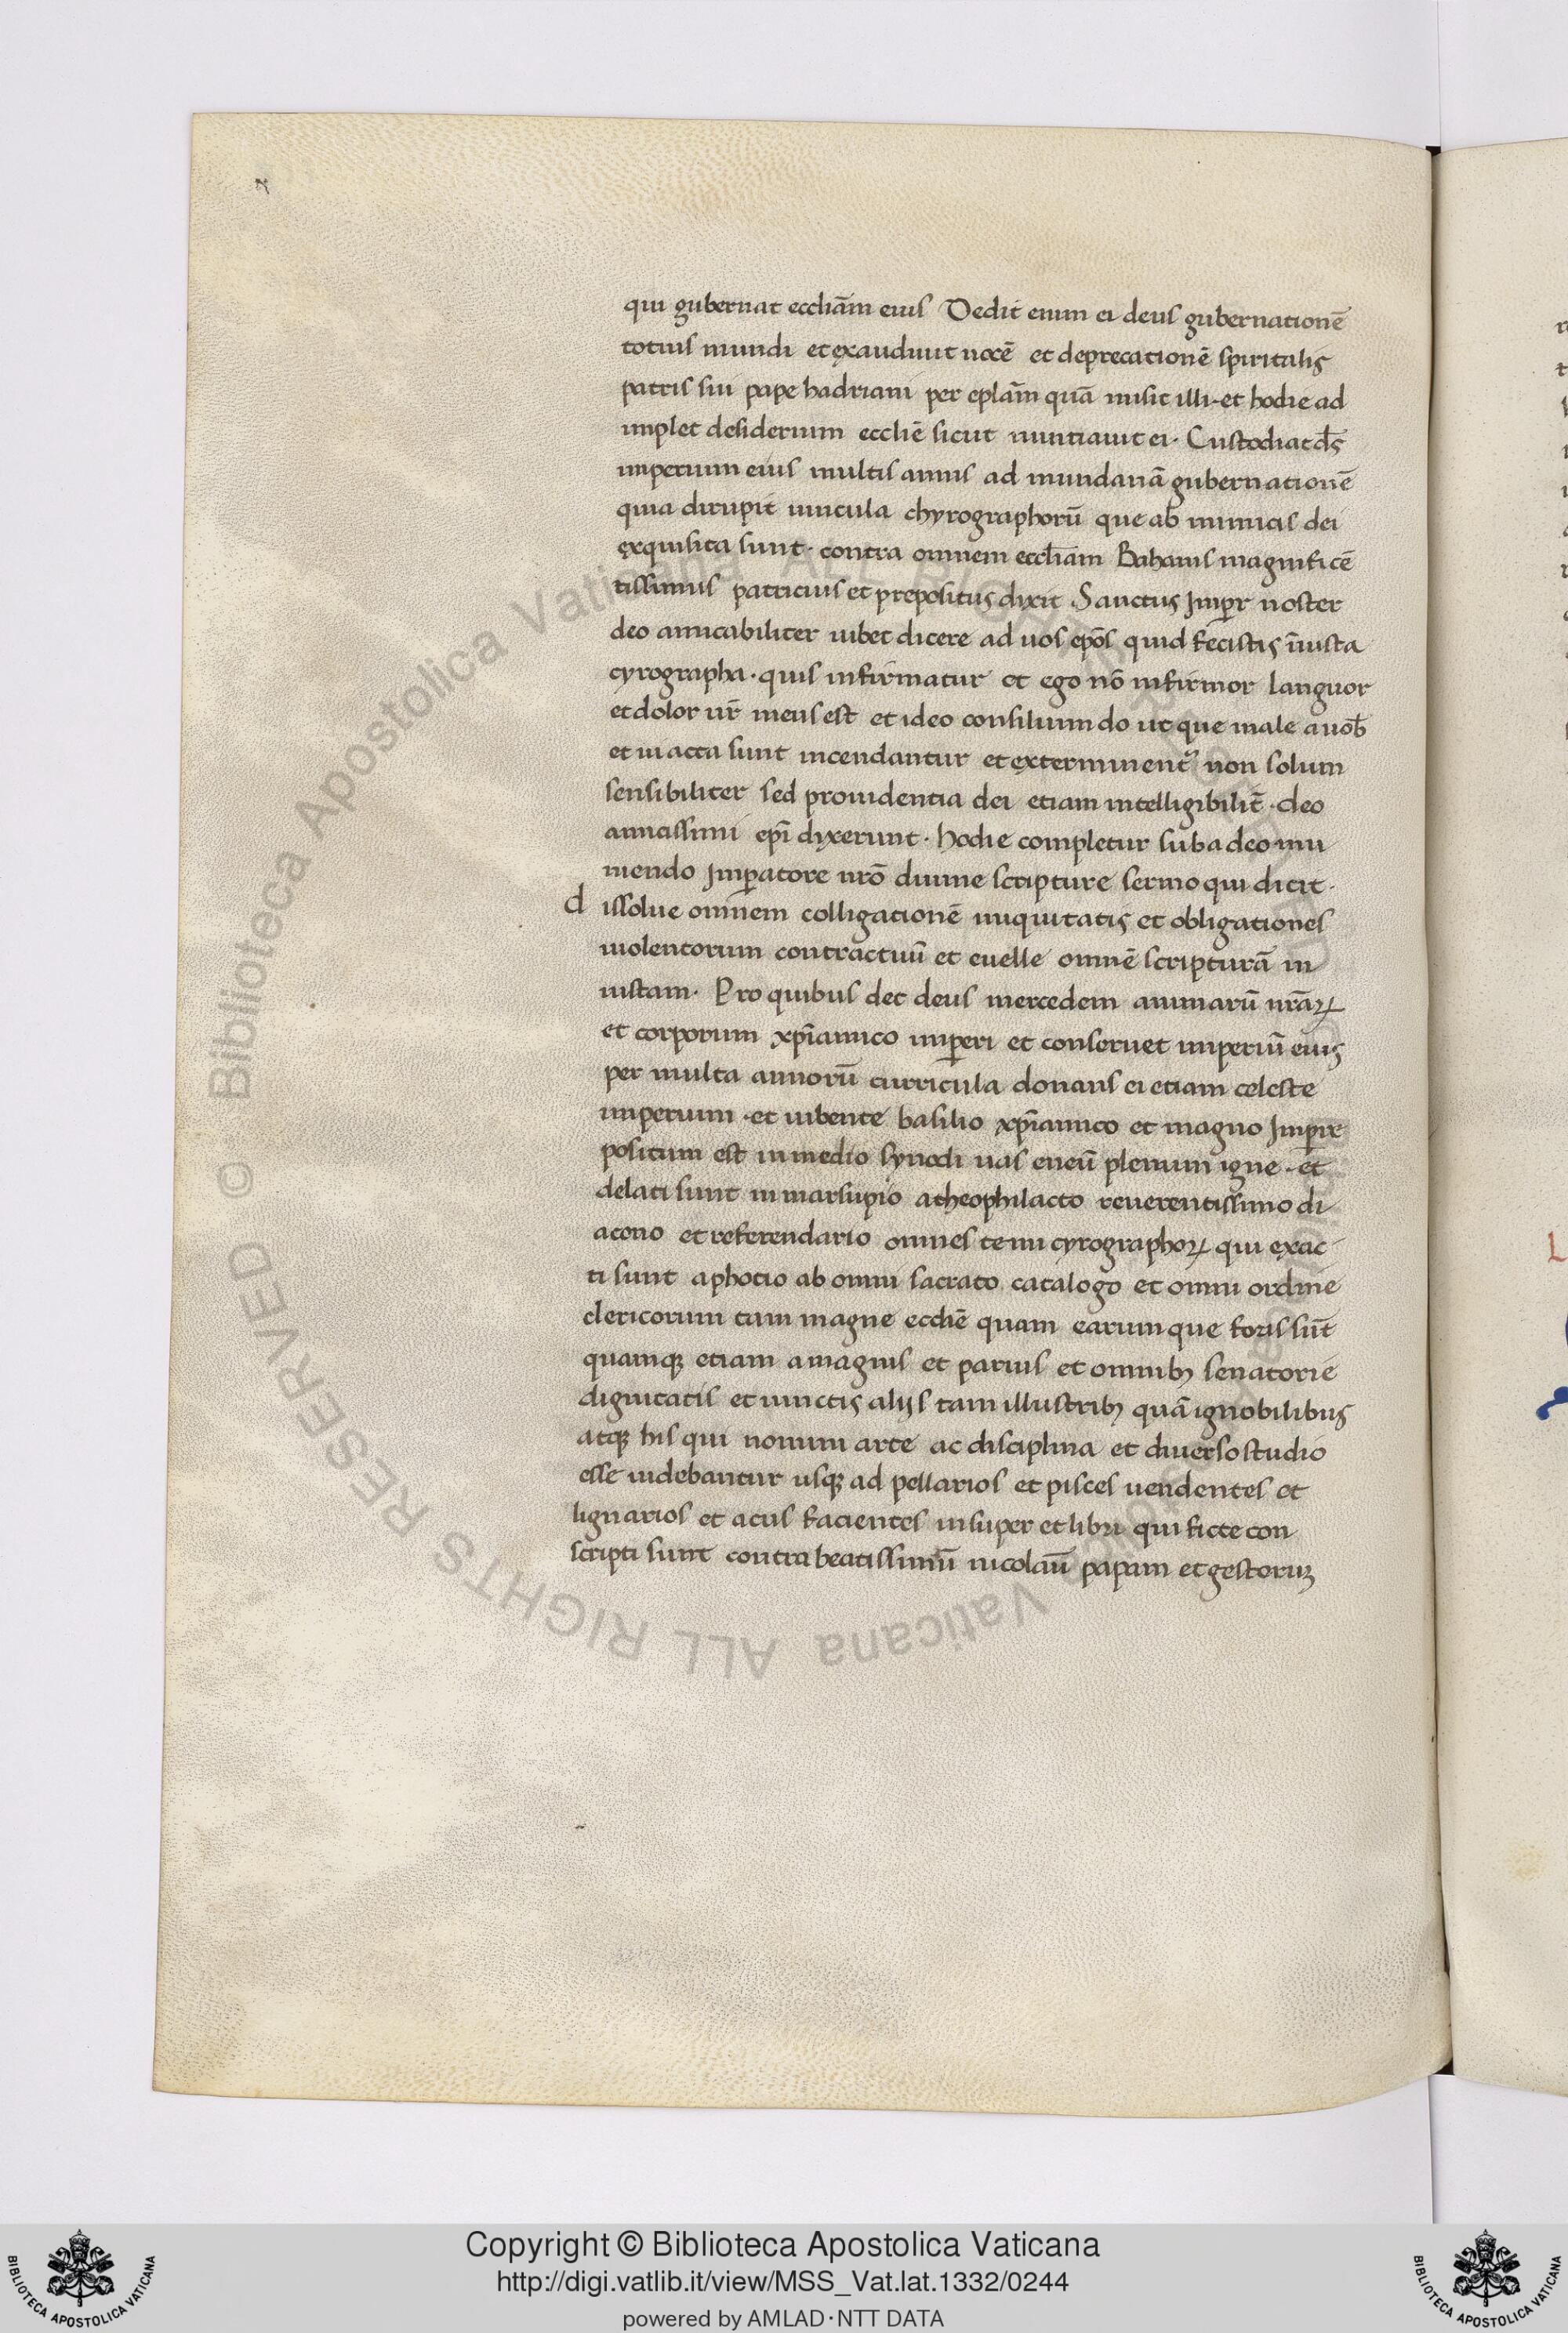 qui gubernat eccliā̄m eius Dedit enim ei deus gubernationē
totius mundi et exaudiuit uocē et deprecationē spiritalis
patris sui pape hadriani per eplā̄m quā misit illi · et hodie ad
implet desiderium eccliē sicut nuntiauit ei · Custodiat ds̄
imperium eius multis annis ad mundanā gubernationē
quia dirupit uincula chyrographorū que ab inimicis dei
exquisita sunt · contra omnem eccl̄iam Bahanis magnificē
tissimus patricius et prepositus dixit Sanctus Imp̄r noster
deo amicabiliter iubet dicere ad uos ep̄os quid fecistis īīusta
cyrographa · quis infirmatur et ego nō infirmor languor
et dolor ur̄ meus est et ideo consilium do ut que male a uob̄
et in acta sunt incendantur et exterminent᷑ non solum
sensibiliter sed prouidentia dei etiam intelligibilit̄ · deo
amicissimi ep̄i dixerunt · hodie completur sub a deo mu
niendo Imp̄atore nr̄o diuine scripture sermo qui dicit ·
d issolue omnem colligationē iniquitatis et obligationes
uiolentorum contractuū et euelle omnē scripturā in
iustam · Pro quibus det deus mercedem animarū nr̄aꝝ
et corporum xp̄ianico imperi et conseruet imperiū eius
per multa annorū curricula donans ei etiam celeste
imperium · et iubente basilio xp̄ianico et magno Imp̄re
positum est in medio synodi uas eneū plenum igne · et
delati sunt in marsupio a theophilacto reuerentissimo di
acono et referendario omnes temi cyrographoꝝ qui exac
ti sunt a photio ab omni sacrato catalogo et omni ordine
clericorum tam magne eccliē quam earum que foris sūt
quamqꝫ etiam a magnis et paruis et omnibꝫ senatorie
dignitatis et iunctis alijs tam illustribꝫ quā ignobilibus
atqꝫ his qui nonum arte ac disciplina et diuerso studio
esse uidebantur usqꝫ ad pellarios et pisces uendentes et
lignarios et acus facientes insuper et libri qui ficte con
scripti sunt contra beatissimū nicolaū papam et gestoruꝫ
Copyright © Biblioteca Apostolica Vaticana
http://digi.vatlib.it/view/MSS_Vat.lat.1332/0244
powered by AMLAD·NTT DATA
BIBLIOTECA APOSTOLICA VATICANA
BIBLIOTECA APOSTOLICA VATICANA
© Biblioteca Apostolica Vaticana ALL RIGHTS RESERVED